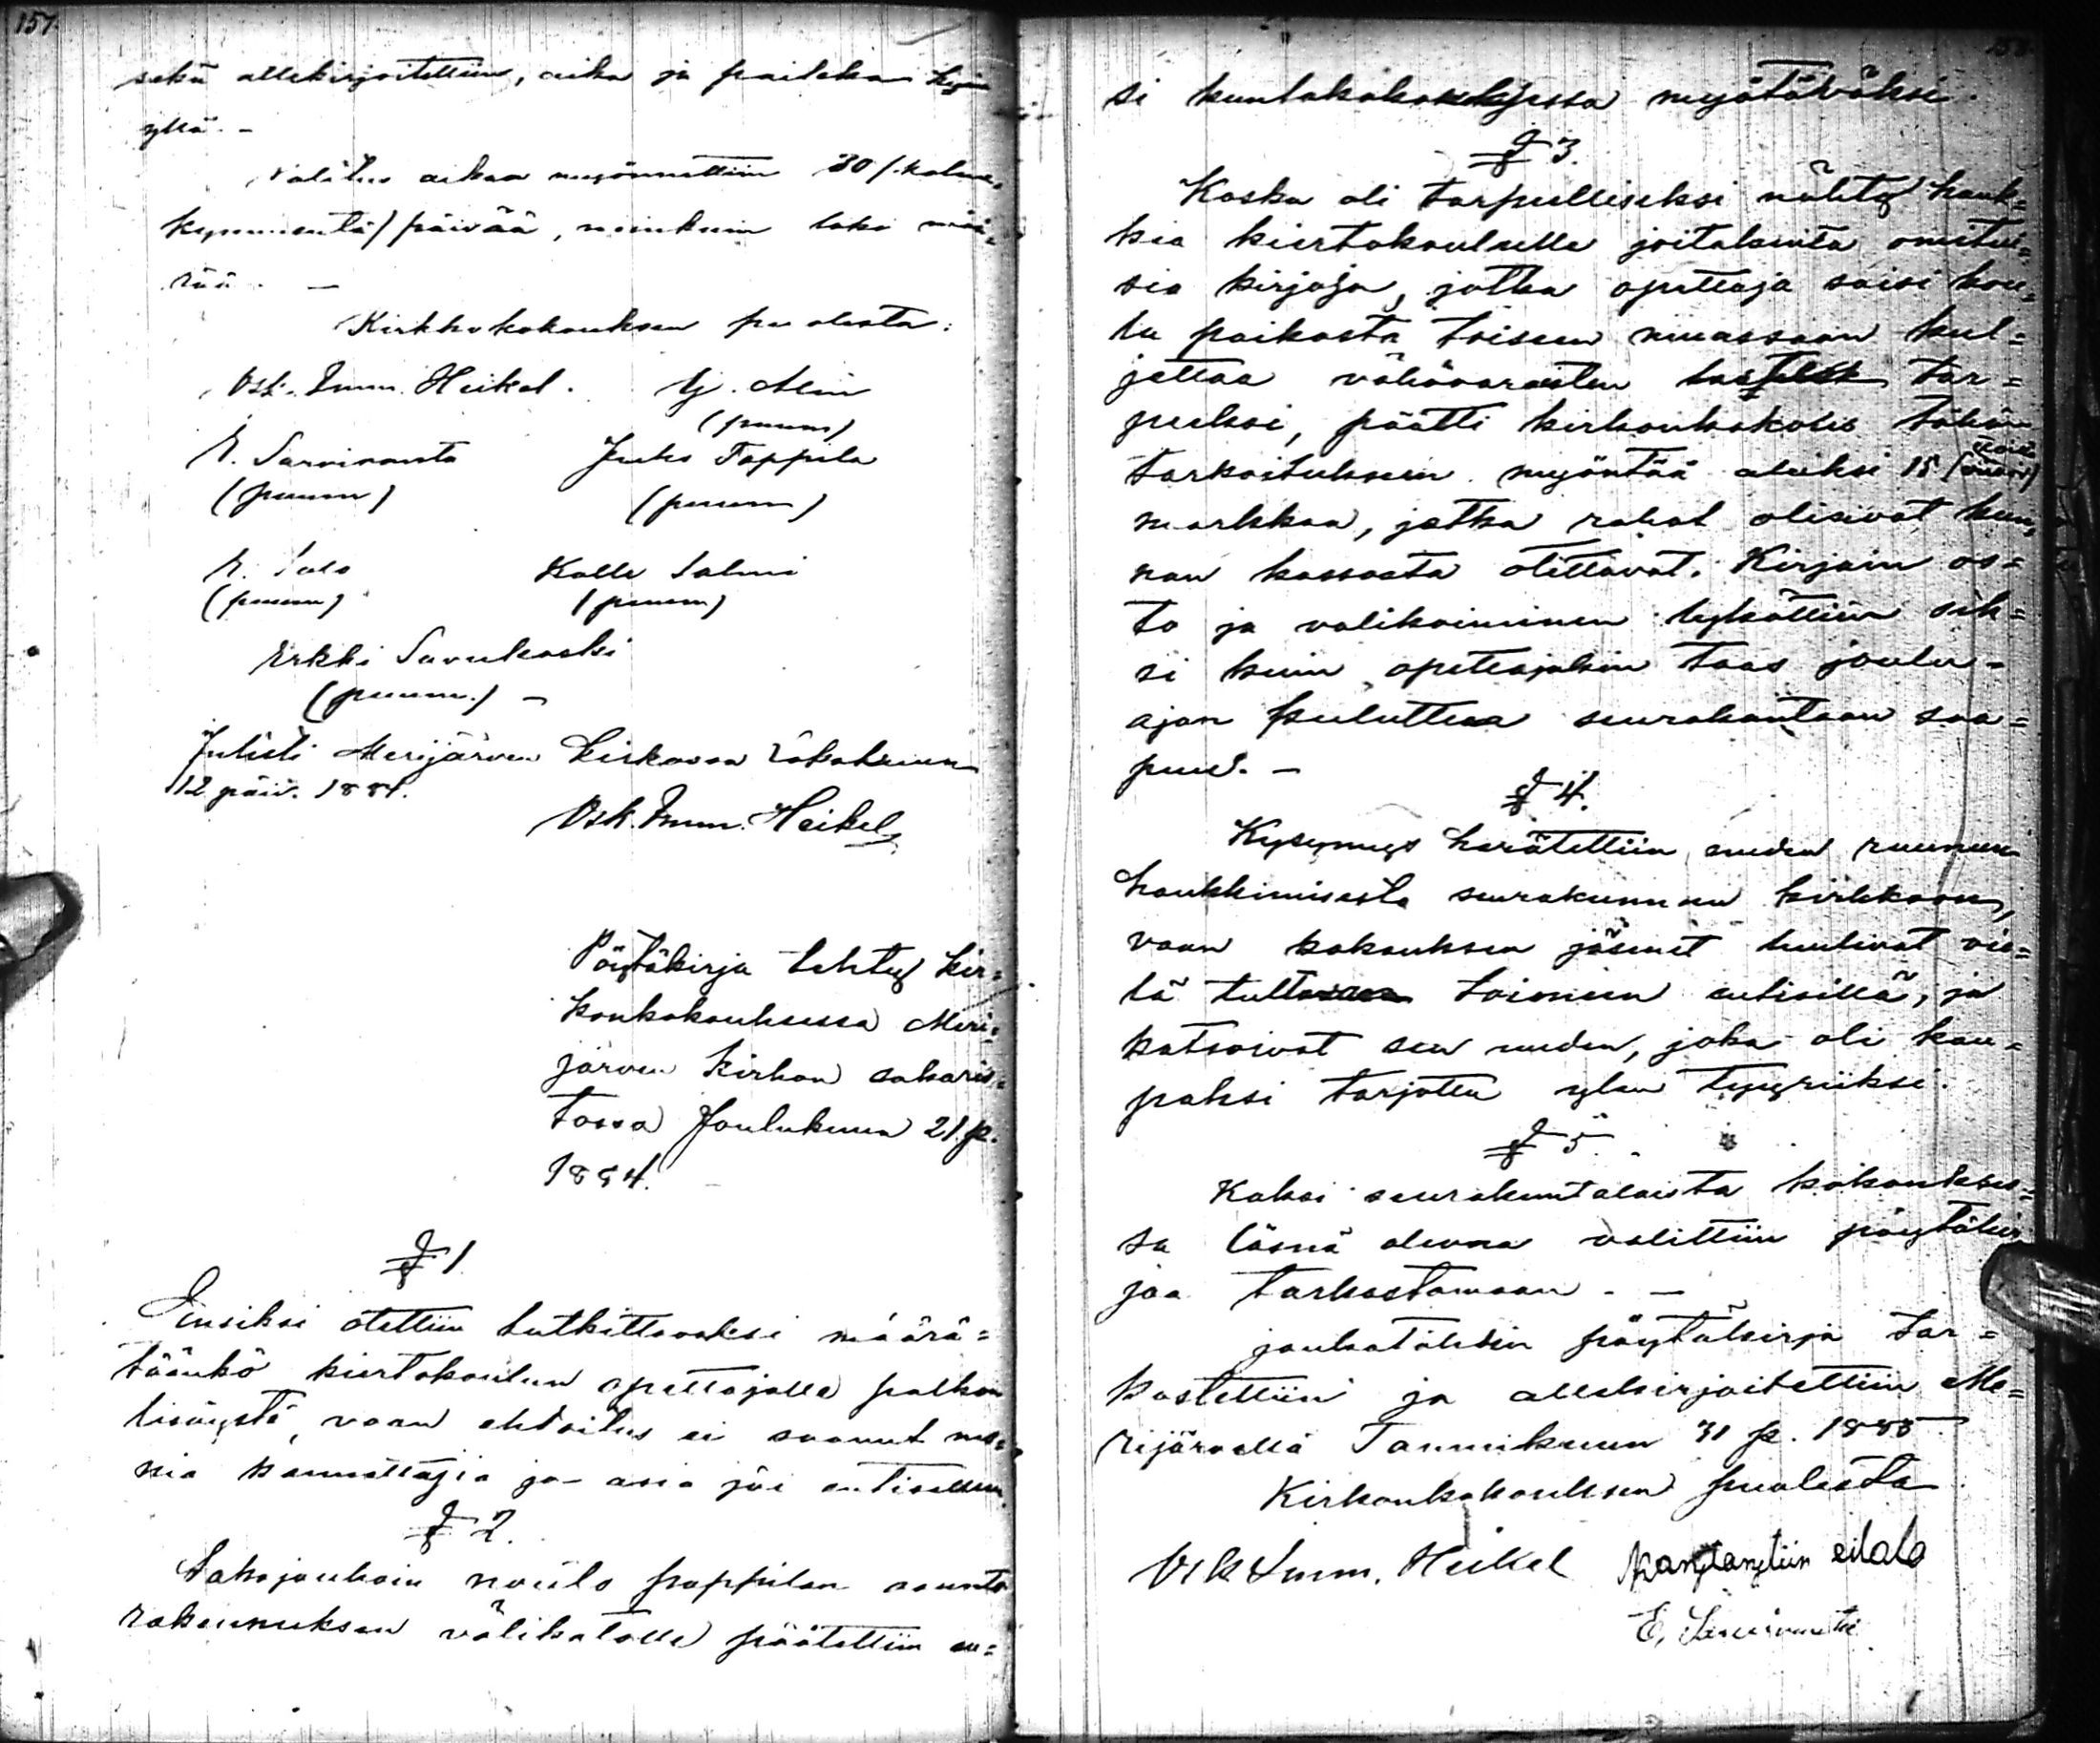 157.
sekä allekirjoitettiin, aika ja paikka kuin
yllä. -
Valitus aikaa myönnettiin 30 /: kolme-
kymmentä/ päivää, niinkuin laki mää=
rää. -
Kirkkokokouksen puolesta:
Osk. Imm. Heikel.
(puum)
E. Sarviranta Juho Tappila
(puum) (puum)
E. Salo Kalle Salmi
(puum) (puum)
Erkki Savukoski
(puum.) -
Julisti Merijärven kirkossa Lokakuun
12 päiv. 1884.
Osk. Imm. Heikel
Pöytäkirja tehty kir=
konkokouksessa Meri=
järven kirkon sakaris=
tossa Joulukuun 21 p.
1884.
§ 1
Ensiksi otettiin tutkittavaksi määrä=
täänkö kiertokoulun opettajalle palkan
lisäystä, vaan ehdoitus ei saanut mo=
nia kannattajia ja asia jäi entisellensä.
§ 2.
pappilan
rakennuksen välikatolle päätettiin en=
158.
si kuntakokouksessa myötäväksi.
§ 3.
Koska oli tarpeelliseksi nähty hank=
kia kiertokoululle joitakuita omitui=
sia kirjoja, jotka opettaja saisi kou=
lu paikasta toiseen muassaan kul=
jettaa vähävaraisten lasten tar=
peeksi, päätti kirkonkokous tähän
tarkoitukseen myöntää aluksi 15 (viisitoista)
markkaa, jotka rahat olisivat kun=
nan kassasta otettavat. Kirjain os=
to ja valikoiminen lykättiin sik=
si kuin opettajakin taas joulu-
ajan kuluttua seurakuntaan saa=
puu. -
§ 4.
Kysymys herätettiin uuden ruunun
hankkimisesta seurakunnan kirkkoon,
vaan kokouksen jäsenet luulivat vie=
lä tultavan toimeen entisillä, ja
katsoivat sen uuden, joka oli kau=
paksi tarjottu ylen tyyriiksi.
§ 5.
Kaksi seurakuntalaista kokoukses=
sa läsnä olevaa valittiin pöytäkir=
jaa tarkastamaan. -
jonkatähden pöytäkirja tar=
kastettiin ja allekirjoitettiin Me=
rijärvellä Tammikuun 31 p. 1885.
Kirkonkokouksen puolesta
Osk Imm. Heikel kanstanstiin eilola
E, Sarviranta